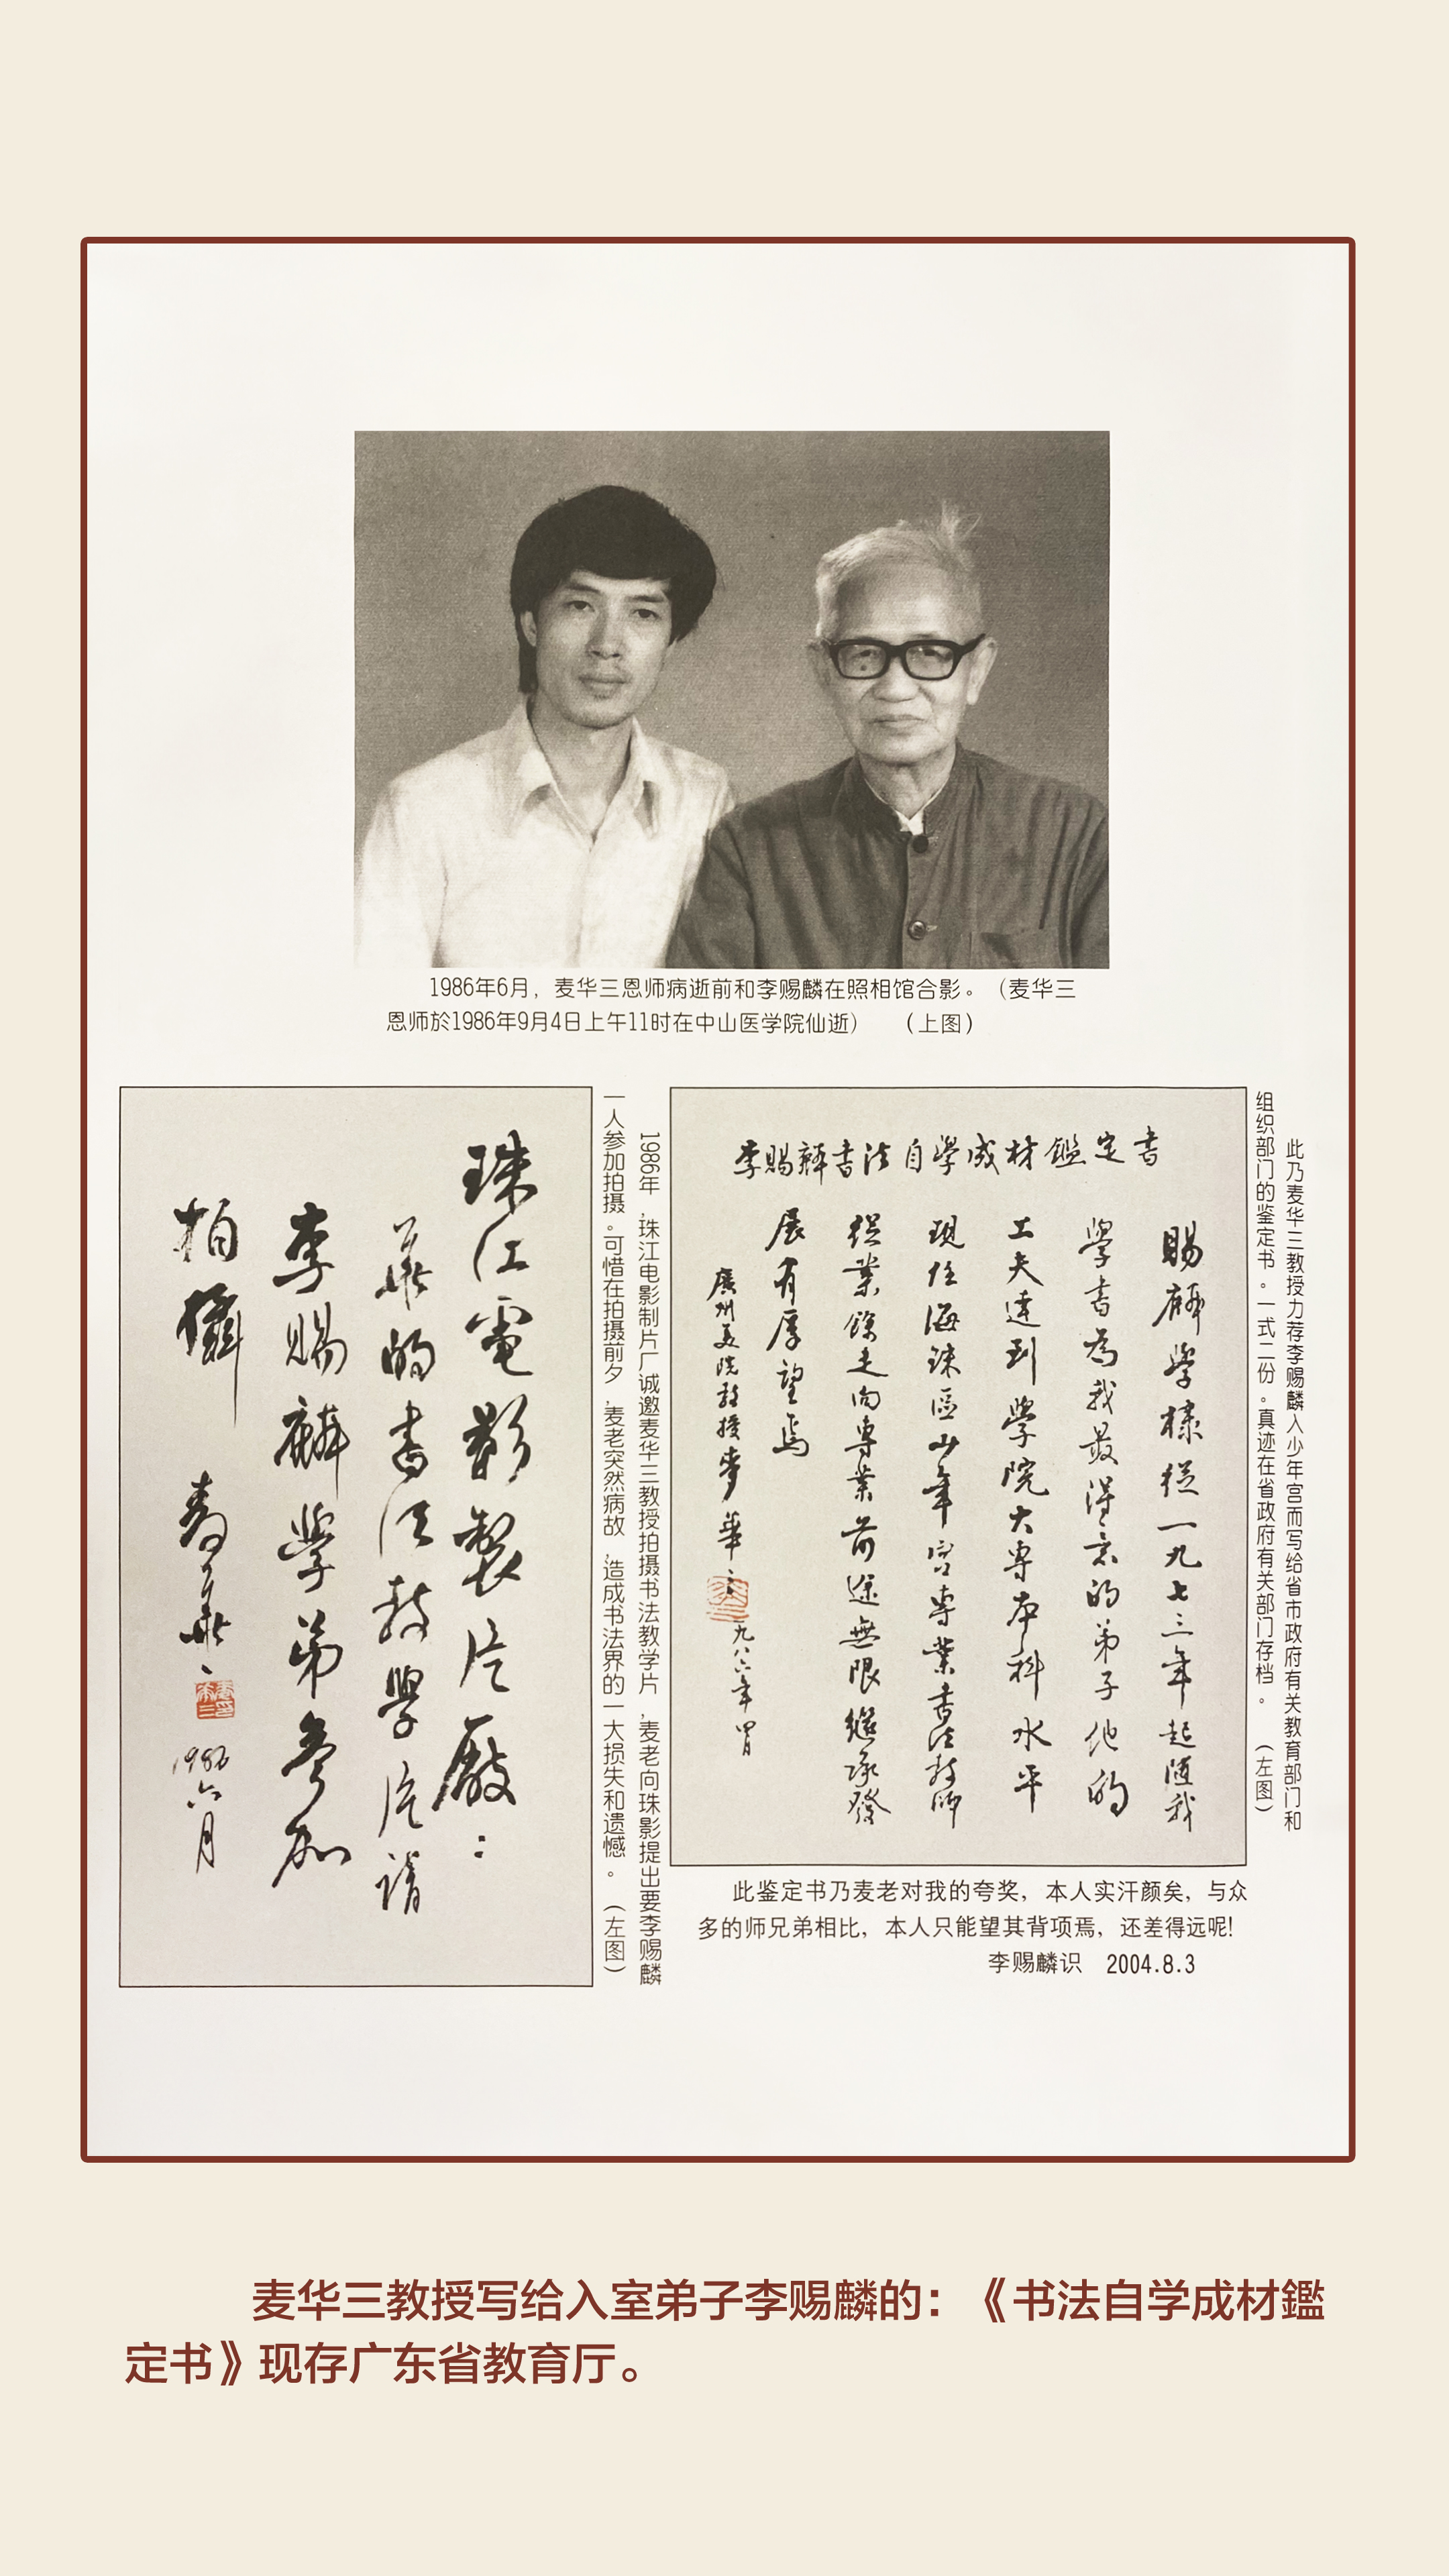 1986年6月，麦华三恩师病逝前和李赐麟在照相馆合影。（麦华三
恩师於1986年9月4日上午11时在中山医学院仙逝）　（上图）
此乃麦华三教授力荐李赐麟入少年宫而写给省市政府有关教育部门和
组织部门的鉴定书。一式二份。真迹在省政府有关部门存档。　（左图）
李賜麟書法自學成材鑑定書
賜麟學棣從一九七三年起隨我
學書為我最得意的弟子他的
工夫達到學院大專本科水平
現任海珠區少年宮專業書法教師
從業餘走向專業前途無限繼承發
展有厚望焉
廣州美院教授麥華三
一九八六年四月
此鉴定书乃麦老对我的夸奖，本人实汗颜矣，与众
多的师兄弟相比，本人只能望其背项焉，还差得远呢！
李赐麟识　2004.8.3
1986年，珠江电影制片厂诚邀麦华三教授拍摄书法教学片，麦老向珠影提出要李赐麟
一人参加拍摄。可惜在拍摄前夕，麦老突然病故，造成书法界的一大损失和遗憾。　（左图）
珠江電影製片廠：
華的書法教學片請
李賜麟學弟參加
拍攝　麥華三
1986六月
麦华三教授写给入室弟子李赐麟的：《书法自学成材鑑
定书》现存广东省教育厅。